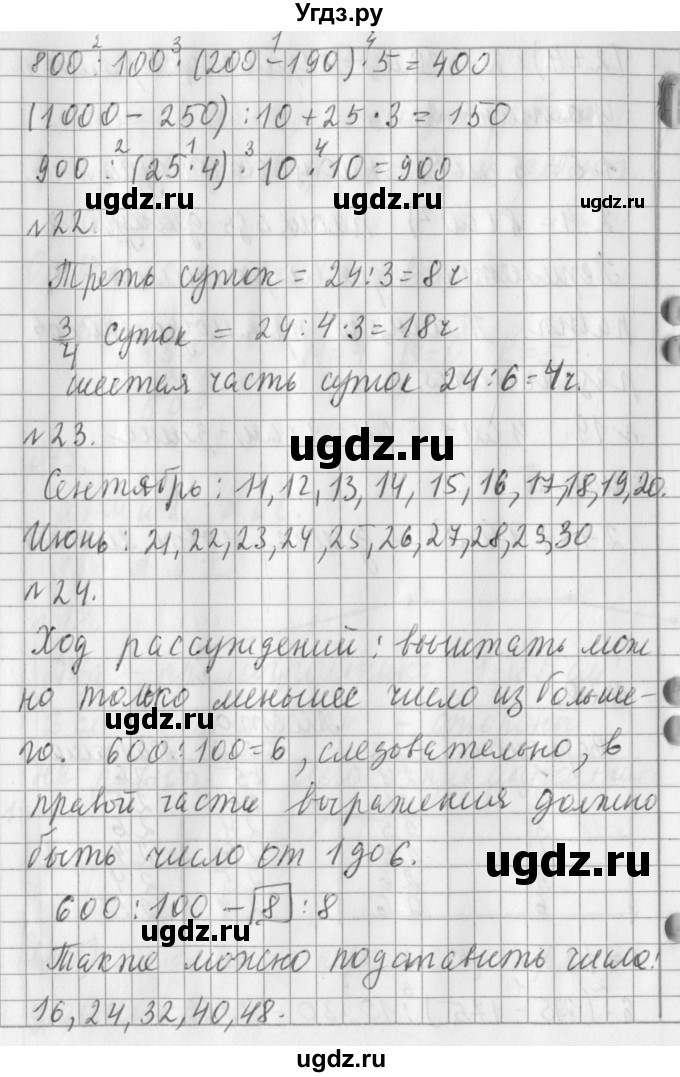 Угдз.ру
800 : 100 · (200 - 190) · 5 = 400
(1000 - 250) : 10 + 25 · 3 = 150
900 : (25 · 4) · 10 · 10 = 900
ugdz.ru
ugdz.ru
№22.
Треть суток = 24:3=8 ч
3/4 суток = 24:4·3=18ч
шестая часть суток 24:6=4ч.
№23.
ugdz.ru
Сентябрь: 11, 12, 13, 14, 15, 16, 17, 18, 19, 20.
Июнь: 21, 22, 23, 24, 25, 26, 27, 28, 29, 30
№24.
Ход рассуждений: вычитать мож
но только меньшее число из больше-
ugdz.ru
го. 600:100=6, следовательно, в
правой части выражения должно
быть число от 1 до 6.
ugdz.ru
600 : 100 - 8 : 8
ugdz.ru
Также можно подставить числа:
16, 24, 32, 40, 48.
ugdz.ru